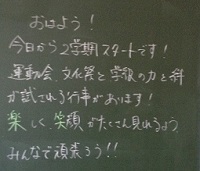 おはよう！
今日から2学期スタートです！
運動会、文化祭と学級の力と絆
が試される行事があります！
楽しく、笑顔がたくさん見れるよう
みんなで頑張ろう!!